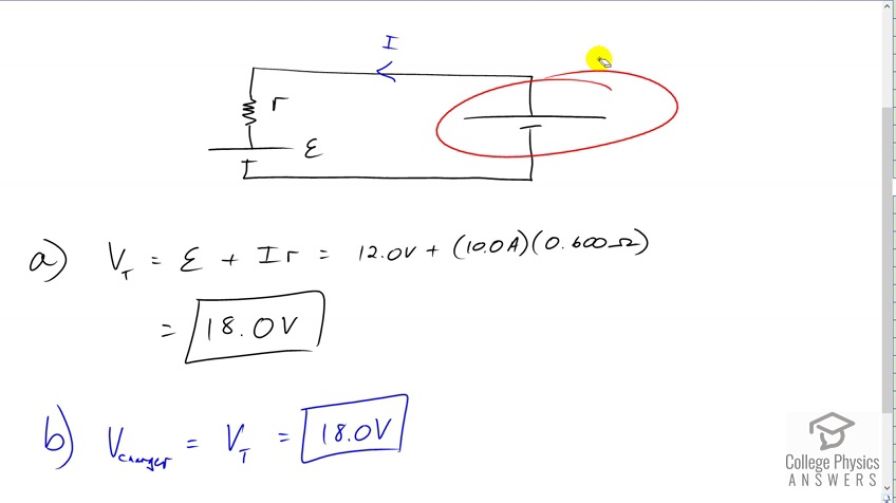 I
r
ε
a) V_T = ε + Ir = 12.0V + (10.0A)(0.600Ω)
= 18.0V
b) V_charger = V_T = 18.0V
College Physics
ANSWERS